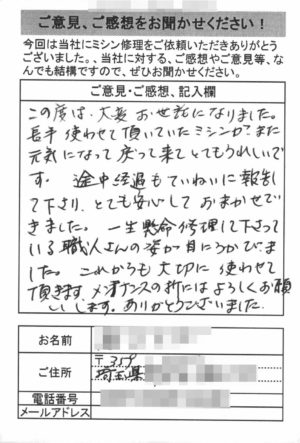 ご意見、ご感想をお聞かせください！
今回は当社にミシン修理をご依頼いただきありがとう
ございました。、当社に対する、ご感想やご意見等、な
んでも結構ですので、ぜひお聞かせください。
ご意見・ご感想、記入欄
この度は、大変お世話になりました。
長年使わせて頂いていたミシンが、また
元気になって戻って来てとてもうれしいで
す。途中経過もていねいに報告し
て下さり、とても安心しておまかせで
きました。一生懸命修理して下さって
いる職人さんの姿が目にうかびまし
た。これからも大切に使わせて
頂きます。メンテナンスの折にはよろしくお願
いします。ありがとうございました。
お名前
ご住所
〒359
埼玉県
電話番号
メールアドレス